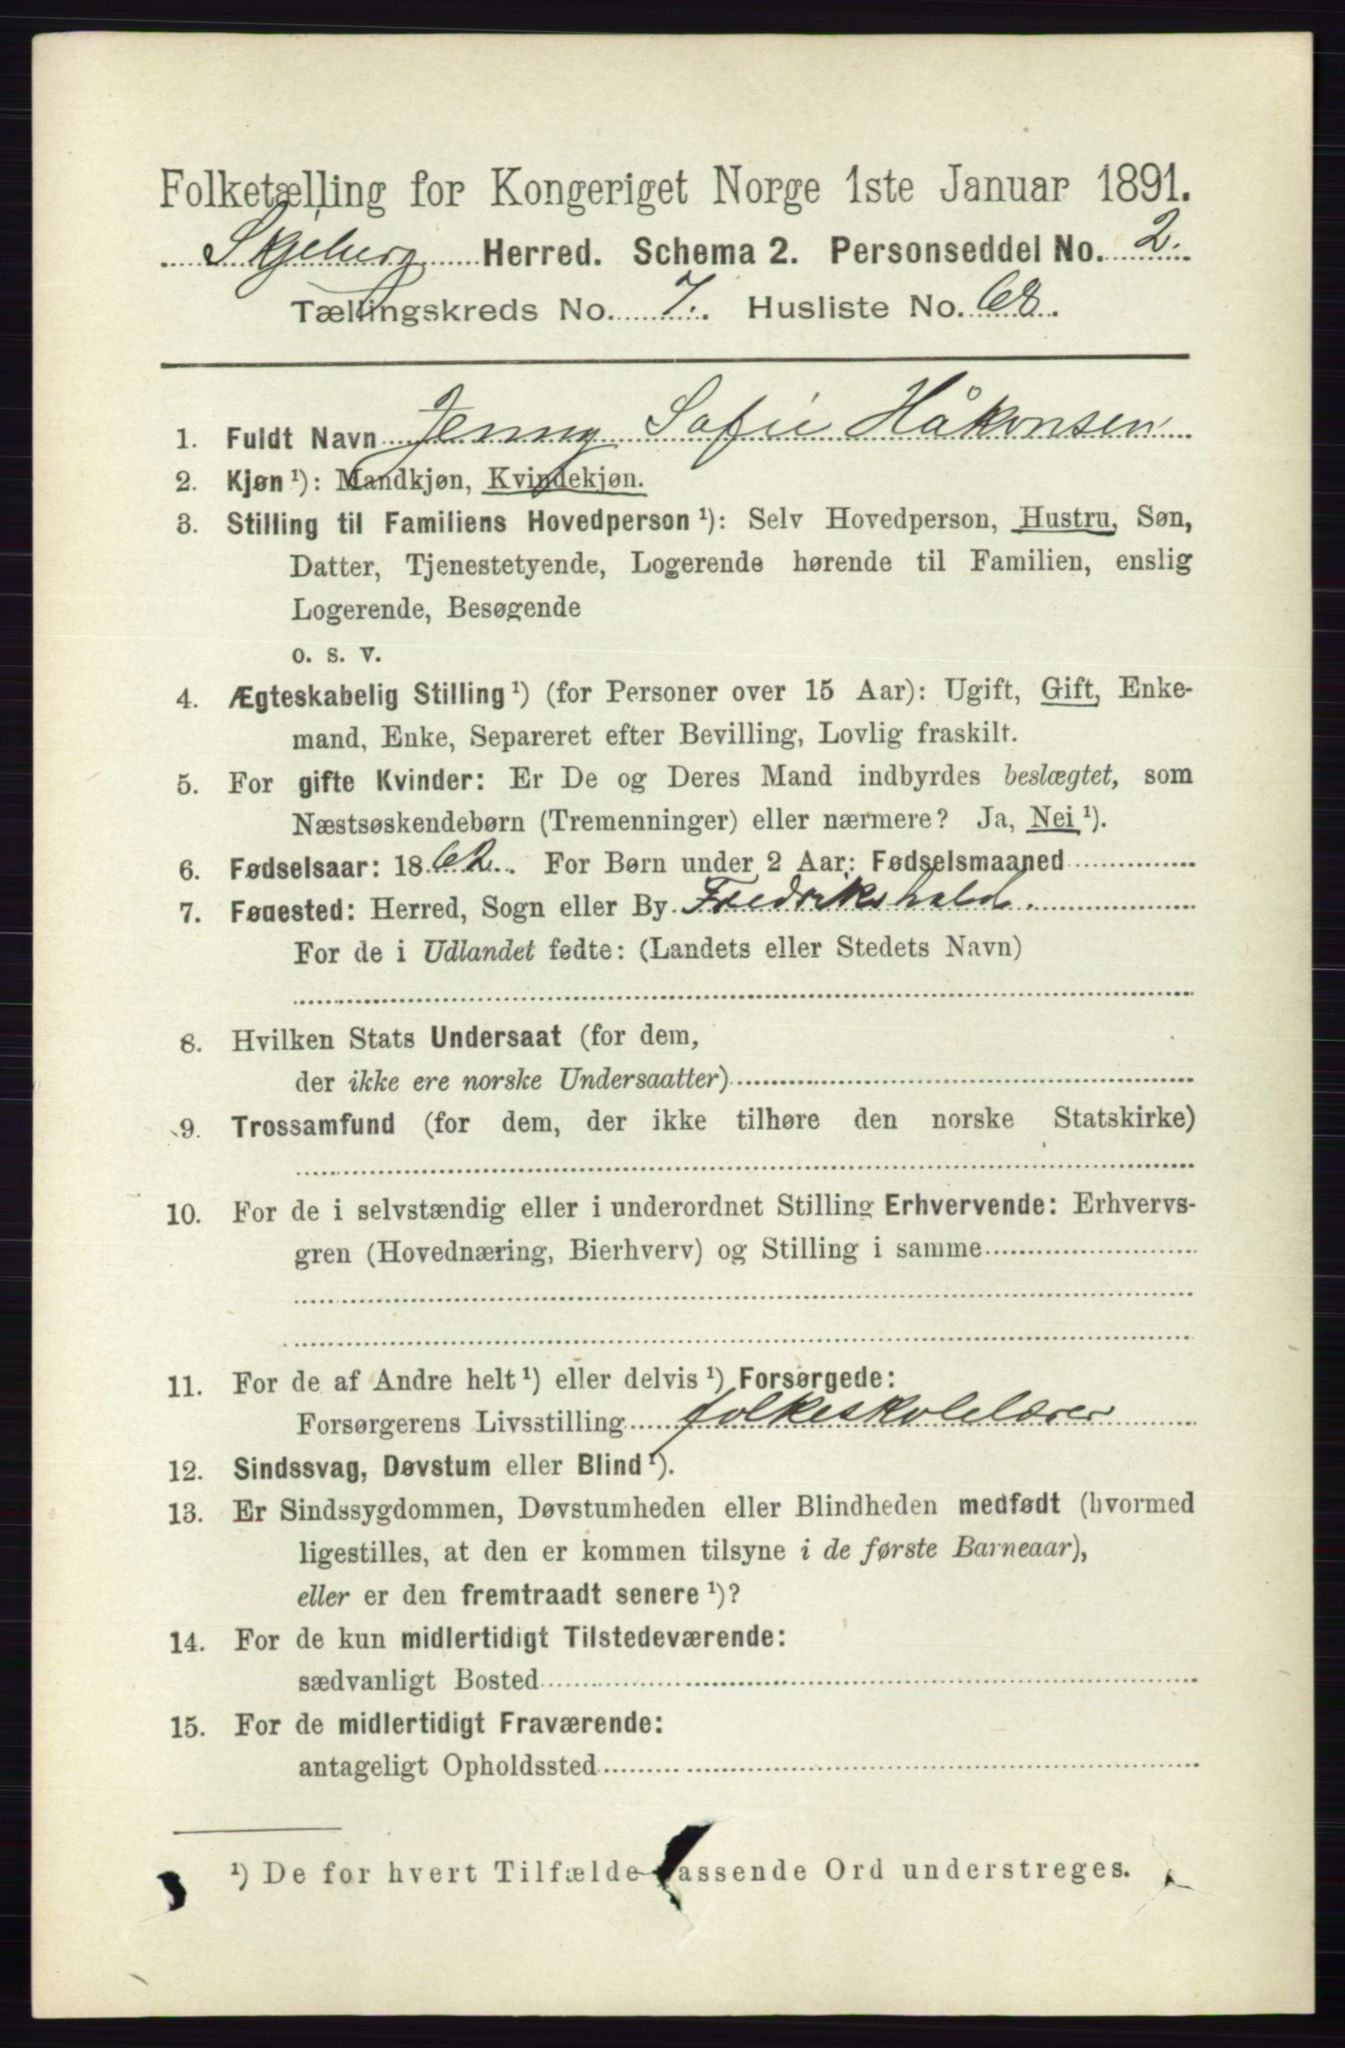 Folketælling for Kongeriget Norge 1ste Januar 1891.
Skjeberg Herred. Schema 2. Personseddel No. 2.
Tællingskreds No. 7. Husliste No. 68.
1. Fuldt Navn Jenny Sofie Håkonsen
2. Kjøn ¹): Mandkjøn, Kvindekjøn.
3. Stilling til Familiens Hovedperson ¹): Selv Hovedperson, Hustru, Søn,
Datter, Tjenestetyende, Logerende hørende til Familien, enslig
Logerende, Besøgende
o. s. v.
4. Ægteskabelig Stilling ¹) (for Personer over 15 Aar): Ugift, Gift, Enke-
mand, Enke, Separeret efter Bevilling, Lovlig fraskilt.
5. For gifte Kvinder: Er De og Deres Mand indbyrdes beslægtet, som
Næstsøskendebørn (Tremenninger) eller nærmere? Ja, Nei ¹).
6. Fødselsaar: 1862. For Børn under 2 Aar: Fødselsmaaned
7. Fødested: Herred, Sogn eller By Fredrikshald.
For de i Udlandet fødte: (Landets eller Stedets Navn)
8. Hvilken Stats Undersaat (for dem,
der ikke ere norske Undersaatter)
9. Trossamfund (for dem, der ikke tilhøre den norske Statskirke)
10. For de i selvstændig eller i underordnet Stilling Erhvervende: Erhvervs-
gren (Hovednæring, Bierhverv) og Stilling i samme
11. For de af Andre helt ¹) eller delvis ¹) Forsørgede:
Forsørgerens Livsstilling folkeskolelærer
12. Sindssvag, Døvstum eller Blind ¹).
13. Er Sindssygdommen, Døvstumheden eller Blindheden medfødt (hvormed
ligestilles, at den er kommen tilsyne i de første Barneaar),
eller er den fremtraadt senere ¹)?
14. For de kun midlertidigt Tilstedeværende:
sædvanligt Bosted
15. For de midlertidigt Fraværende:
antageligt Opholdssted
¹) De for hvert Tilfælde passende Ord understreges.